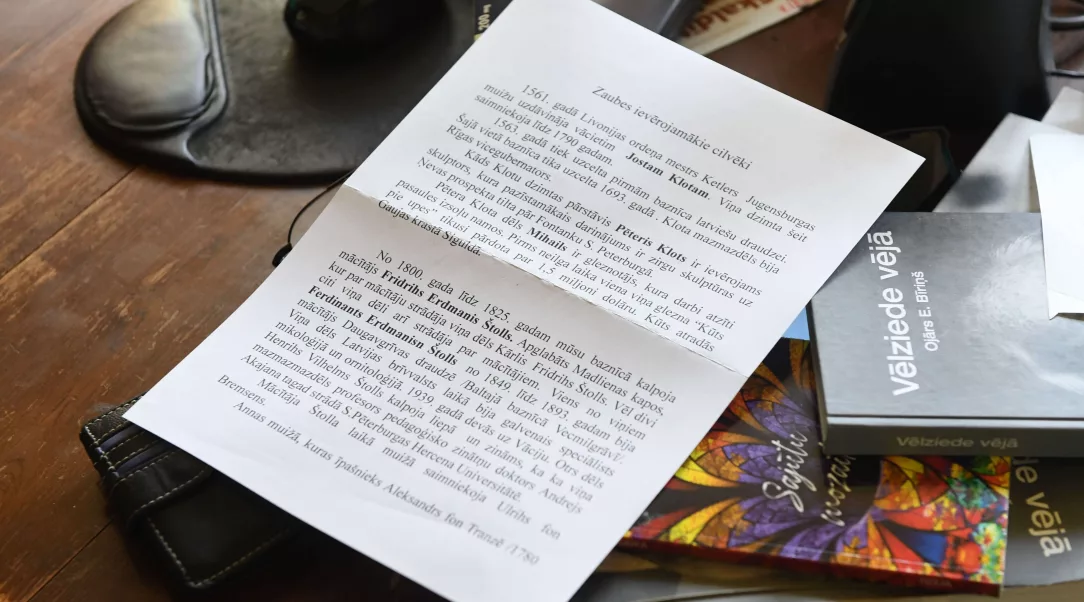 Zaubes ievērojamākie cilvēki
1561. gadā Livonijas ordeņa mestrs Ketlers Jugensburgas
muižu uzdāvināja vācietim Jostam Klotam. Viņa dzimta šeit
saimniekoja līdz 1790 gadam.
1563. gadā tiek uzcelta pirmām baznīca latviešu draudzei.
Šajā vietā baznīca tika uzcelta 1693. gadā. Klota mazmazdēls bija
Rīgas vicegubernators.
Kāds Klotu dzimtas pārstāvis Pēteris Klots ir ievērojams
skulptors, kura pazīstamākais darinājums ir zirgu skulptūras uz
Ņevas prospekta tilta pār Fontanku S. Pēterburgā.
Pētera Klota dēls Mihails ir gleznotājs, kura darbi atzīti
pasaules izsoļu namos. Pirms neilga laika viena viņa glezna "Kūts
pie upes" tikusi pārdota par 1,5 miljoni dolāru. Kūts atradās
Gaujas krastā Siguldā.
No 1800. gada līdz 1825. gadam mūsu baznīcā kalpoja
mācītājs Fridrihs Erdmanis Štolls. Apglabāts Madlienas kapos,
kur par mācītāju strādāja viņa dēls Kārlis Fridrihs Štolls. Vēl divi
citi viņa dēli arī strādāja par mācītājiem. Viens no viņiem
Ferdinants Erdmanisn Štolls no 1849. līdz 1893. gadam bija
mācītājs Daugavgrīvas draudzē /Baltajā baznīcā Vecmīlgrāvī/.
Viņa dēls Latvijas brīvvalsts laikā bija galvenais speciālists
mikoloģijā un ornitoloģijā. 1939. gadā devās uz Vāciju. Otrs dēls
Henrihs Vilhelms Štolls kalpoja liepā un zināms, ka viņa
mazmazmazdēls profesors pedagoģisko zinātņu doktors Andrejs
Akajana tagad strādā S.Pēterburgas Hercena Universitātē.
Mācītāja Štolla laikā muižā saimniekoja Ulrihs fon
Bremsens.
Annas muižā, kuras īpašnieks Aleksandrs fon Tranzē /1780
Vēlziede vējā
Ojārs E. Bīriņš
Vēlziede vējā
Sajūtu
vējā